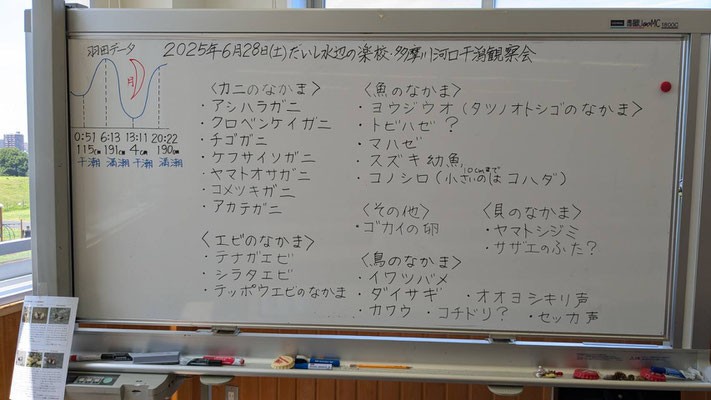 2025年6月28日(土)だいし水辺の楽校・多摩川河口干潟観察会
羽田データ
月
0:51 6:13 13:11 20:22
115cm 191cm 4cm 190cm
干潮 満潮 干潮 満潮
〈カニのなかま〉
・アシハラガニ
・クロベンケイガニ
・チゴガニ
・ケフサイソガニ
・ヤマトオサガニ
・コメツキガニ
・アカテガニ
〈エビのなかま〉
・テナガエビ
・シラタエビ
・テッポウエビのなかま
〈魚のなかま〉
・ヨウジウオ(タツノオトシゴのなかま〉
・トビハゼ?
・マハゼ
・スズキ幼魚
・コノシロ(小さいのはコハダ)
10cmまで
〈その他〉
・ゴカイの卵
〈貝のなかま〉
・ヤマトシジミ
・サザエのふた?
〈鳥のなかま〉
・イワツバメ
・ダイサギ ・オオヨシキリ声
・カワウ ・コチドリ? ・セッカ声